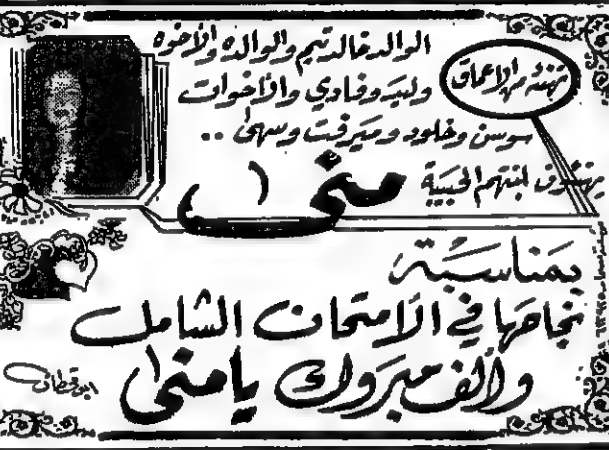 تهنئة من الأعماق
الوالد خالد تيم والوالده والأخوه
وليد وفادي والأخوات
سوسن وخلود وميرفت وسهى ..
يهنئون ابنتهم الحبيبة
منى
بمناسبة
نجاحها في الامتحان الشامل
وألف مبروك يا منى
ابو قطان